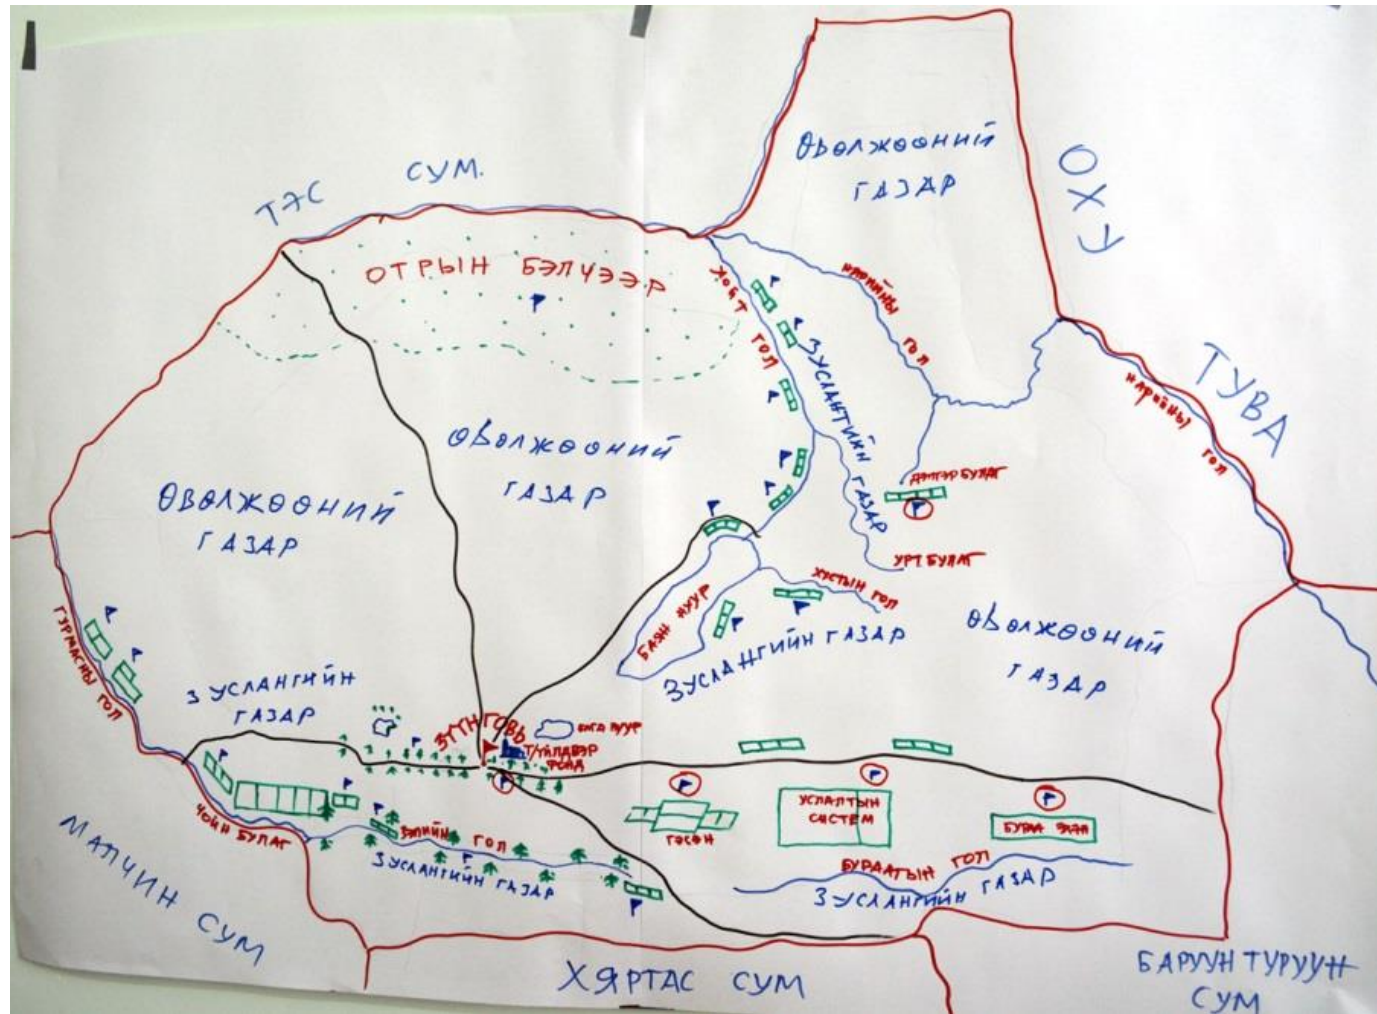 ТЭС СУМ.
ӨВӨЛЖӨӨНИЙ
ГАЗАР
ОХУ
ТУВА
ОТРЫН БЭЛЧЭЭР
ХОЙТ ГОЛ
НАРИЙНЫ ГОЛ
НАРИЙНЫ ГОЛ
ЗУСЛАНГИЙН ГАЗАР
ӨВӨЛЖӨӨНИЙ
ГАЗАР
ӨВӨЛЖӨӨНИЙ
ГАЗАР
БУЛАГ
УРТ БУЛАГ
ХУСТЫН ГОЛ
БАЯН НУУР
ЗУСЛАНГИЙН ГАЗАР
ӨВӨЛЖӨӨНИЙ
ГАЗАР
ГОЛ
ЗУСЛАНГИЙН
ГАЗАР
НУУР
Т/ҮЙЛДВЭР
ФОНД
ЧОЙН БУЛАГ
ЗЭЛИЙН ГОЛ
ЗУСЛАНГИЙН ГАЗАР
УСЛАЛТЫН
СИСТЕМ
БУРААГЫН ГОЛ
ЗУСЛАНГИЙН ГАЗАР
МАЛЧИН СУМ
ХЯРТАС СУМ
БАРУУНТУРУУН
СУМ